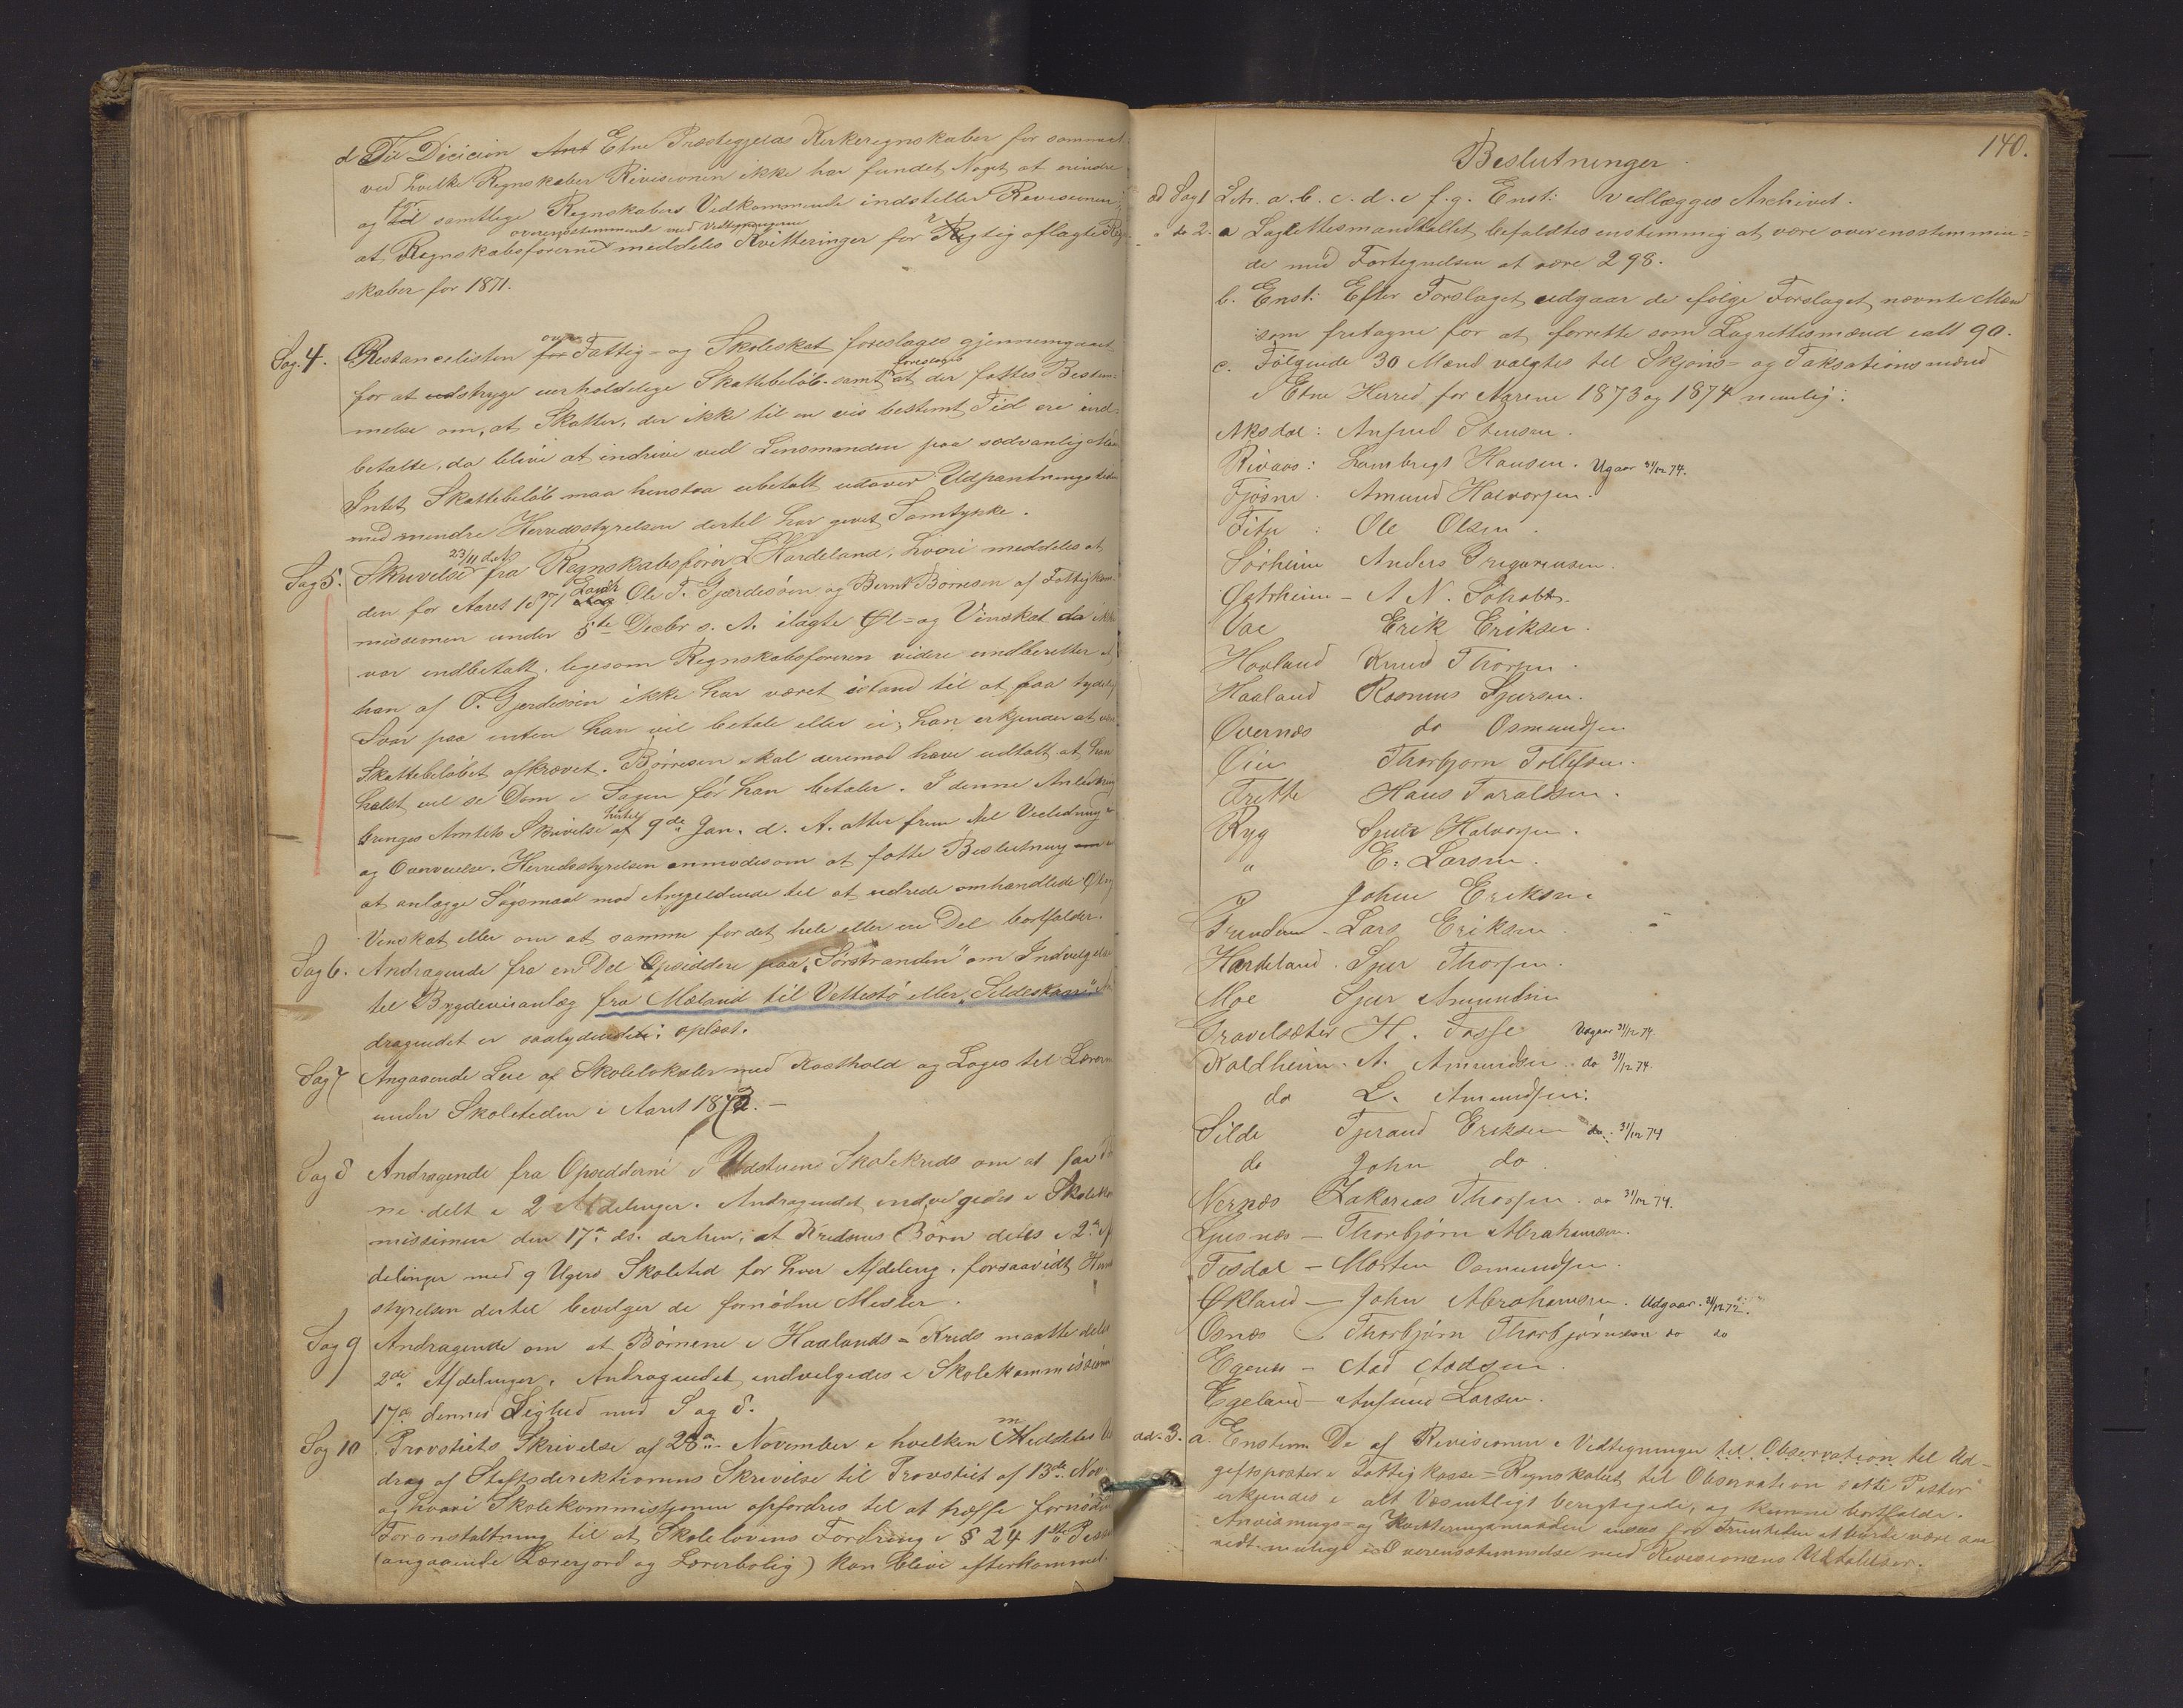 d Til Dicicion Etne Præstegjelds Kirkeregnskaber for samme
ved hvilke Regnskaber Revisionen ikke har fundet Noget at erindre
og Til samtlige Regnskabers Vedkommende indstiller Revisionen
overensstemmende med Vedtegningerne
at Regnskabsførerne meddeles Kvitteringer for Rigtig aflagte Regn-
skaber for 1871.
Sag. 4. Restancelisten over Fattig- og Skoleskat foreslages gjennemgaaet
for at udstryge uerholdelige Skattebeløb samt foreslages at der fattes Bestem-
melse om, at Skatter, der ikke til en vis bestemt Tid ere ind-
betalte, da blive at inddrive ved Lensmanden paa sædvanlig
Intet Skattebeløb maa henstaa ubetalt udover Udpantningstiden
med mindre Herredsstyrelsen dertil har givet Samtykke.
Sag 5. Skrivelse 23/11 dat fra Regnskabsfører L Hardeland, hvori meddeles at
den for Aaret 1871 Landh Ole T. Gjærdesøen og Bernt Børresen af Fattigkom-
missionen under 5te Decbr s. A. ilagte Øl- og Vinskat da ikke
var indbetalt, ligesom Regnskabsføreren videre indberetter at
han af O. Gjerdesøen ikke har været istand til at faa tydelig
Svar paa enten han vil betale eller ei, han erkjender at være
Skattebeløbet afkrævet. Børresen skal derimod have udtalt at han
helst vil se Dom i Sagen før han betaler. I denne Anledning
bringes Amtets Skrivelse hertil af 9de Jan. d. A. atter frem til Veiledning
og Overveielse. Herredsstyrelsen anmodes om at fatte Beslutning om
at anlægge Søgsmaal mod Angjeldende til at udrede omhandlede Øl og
Vinskat eller om at samme for det hele eller en Del bortfalder.
Sag 6. Andragende fra en Del Opsiddere paa "Sørstranden" om Indvelgelse
til Bygdeveisanlæg fra Mæland til Vettestø eller "Sildeskaar" An
dragendet er saalydende: oplæst.
Sag 7 Angaaende Leie af Skolelokaler med Kosthold og Logis til Læreren
under Skoletiden i Aaret 1873. -
Sag 8 Andragende fra Opsidderne i Skolekreds om at faa
ne delt i 2 Afdelinger. Andragendet indvelgedes i Skolekom
missionen den 17de ds. derhen, at Kredsens Børn deles i 2de Af
delinger med 9 Ugers Skoletid for hver Afdeling, forsaavidt Herreds
styrelsen dertil bevilger de fornødne Midler.
Sag 9 Andragende om at Børnene i Haalands-Kreds maatte deles
2de Afdelinger. Andragendet indvelgedes i Skolekommissionen
17de dennes Ligtud med Sag 8.
Sag 10. Provstiets Skrivelse af 28de November i hvilken Meddeles Ud
drag af Stiftsdirektionens Skrivelse til Provstiet af 13de Nov
og hvori Skolekommissionen opfordres til at træffe fornøden
Foranstaltning til at Skolelovens Fordring i § 24 1ste Passus
(angaaende Lærerjord og Lærerbolig) kan blive efterkommet.
140.
Beslutninger.
ad Sag 1 Litr. a. b. c. d. e f. g. Enst: vedlægges Archivet.
" do 2. a Lagrettesmandtallet befaldtes enstemmig at være overensstemmen-
de med Fortegnelsen at være 298.
b. Enst: Efter Forslaget udgaar de ifølge Forslaget nævnte Mænd
som fritagne for at forrette som Lagrettesmænd ialt 90.
c. Følgende 30 Mænd valgtes til Skjøns- og Taksationsmænd
i Etne Herred for Aarene 1873 og 1874 nemlig:
Aksdal: Anfind Stensen.
Rivaas: Lambregt Hansen. Ugaar 31/12 74.
Fjøsne: Amund Halvorsen.
Fitje: Ole Olsen.
Sørheim Anders Gregoriusen.
Østrheim - A N. Schabt.
Vae Erik Eriksen.
Haaland Knud Thorsen.
Haaland Rasmus Sjursen.
Overnæs do Osmundsen
Øien Thorbjørn Tollefsen.
Frette Hans Taraldsen.
Ryg Sjur Halvorsen.
" E. Larsen.
" Johan Eriksen
Grinden - Lars Eriksen.
Hardeland. Sjur Thorsen.
Moe Sjur Amundsen
Gravelsæter H. Fosse Udgaar 31/12 74.
Kaldheim. A. Amundsen. do 31/12 74.
do L. Amundsen.
Silde Tjerand Eriksen do. 31/12 74
do John do.
Nernæs Zakarias Thorsen. do 31/12 74.
Ljusnæs - Thorbjørn Abrahamsen.
Tesdal - Morten Osmundsen.
Økland - John Abrahamsen. Udgaar. 31/12 72.
Osnæs - Thorbjørn Thorbjørnsen do do
Egenes - Aad Aadsen.
Egeland - Anfind Larsen.
ad. 3. a. Enstem. De af Revisionen i Vedtegninger til Observation til Ud-
giftsposter i Fattigkasse-Regnskabet til Observation satte Poster
erkjendes i alt Væsentligt berigtigede, og kunne bortfalde.
Anvisnings- og Kvitteringsmaaden ansees for Fremtiden at burde være saa
vidt mulige i Overensstemmelse med Revisionens Udtalelser.